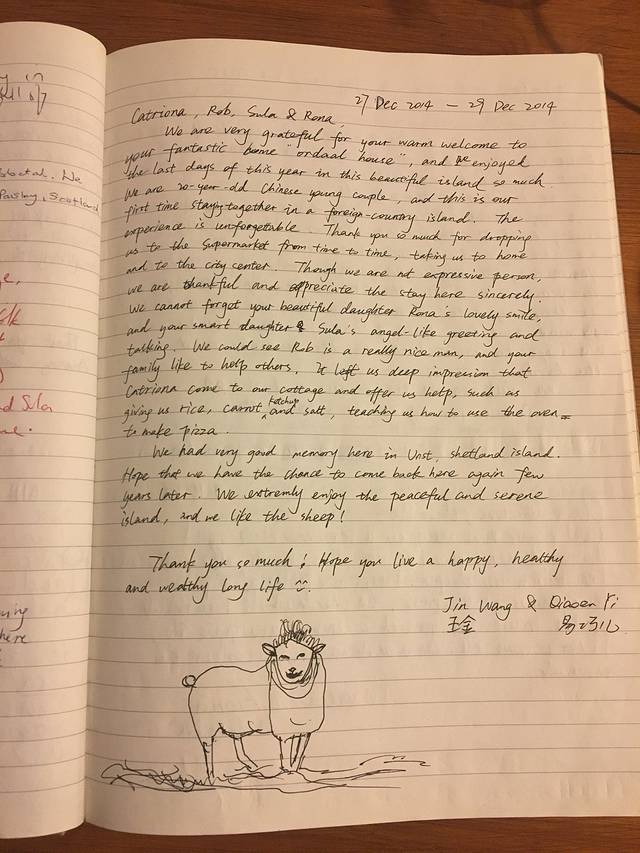 in
sbstal. We
Paisley, Scotland
nd Sula
here
27 Dec 2014 — 29 Dec 2014
Catriona, Rob, Sula & Rona,
We are very grateful for your warm welcome to
your fantastic home "ordaal house", and we enjoyed
the last days of this year in this beautiful island so much.
We are 20-year-old Chinese young couple, and this is our
first time stay together in a foreign-country island. The
experience is unforgetable. Thank you so much for dropping
us to the supermarket from time to time, taking us to home
and to the city center. Though we are not expressive person,
we are thankful and appreciate the stay here sincerely.
We cannot forget your beautiful daughter Rona's lovely smile,
and your smart daughter Sula's angel-like greeting and
talking. We could see Rob is a really nice man, and your
family like to help others. It left us deep impression that
Catriona come to our cottage and offer us help, such as
giving us rice, carrot, ketchup and salt, teaching us how to use the oven
to make pizza.
We had very good memory here in Unst, shetland island.
Hope that we have the chance to come back here again few
years later. We extremly enjoy the peaceful and serene
island, and we like the sheep!
Thank you so much! Hope you live a happy, healthy
and wealthy long life
Jin Wang & Qiaoer Yi
王金 易巧儿